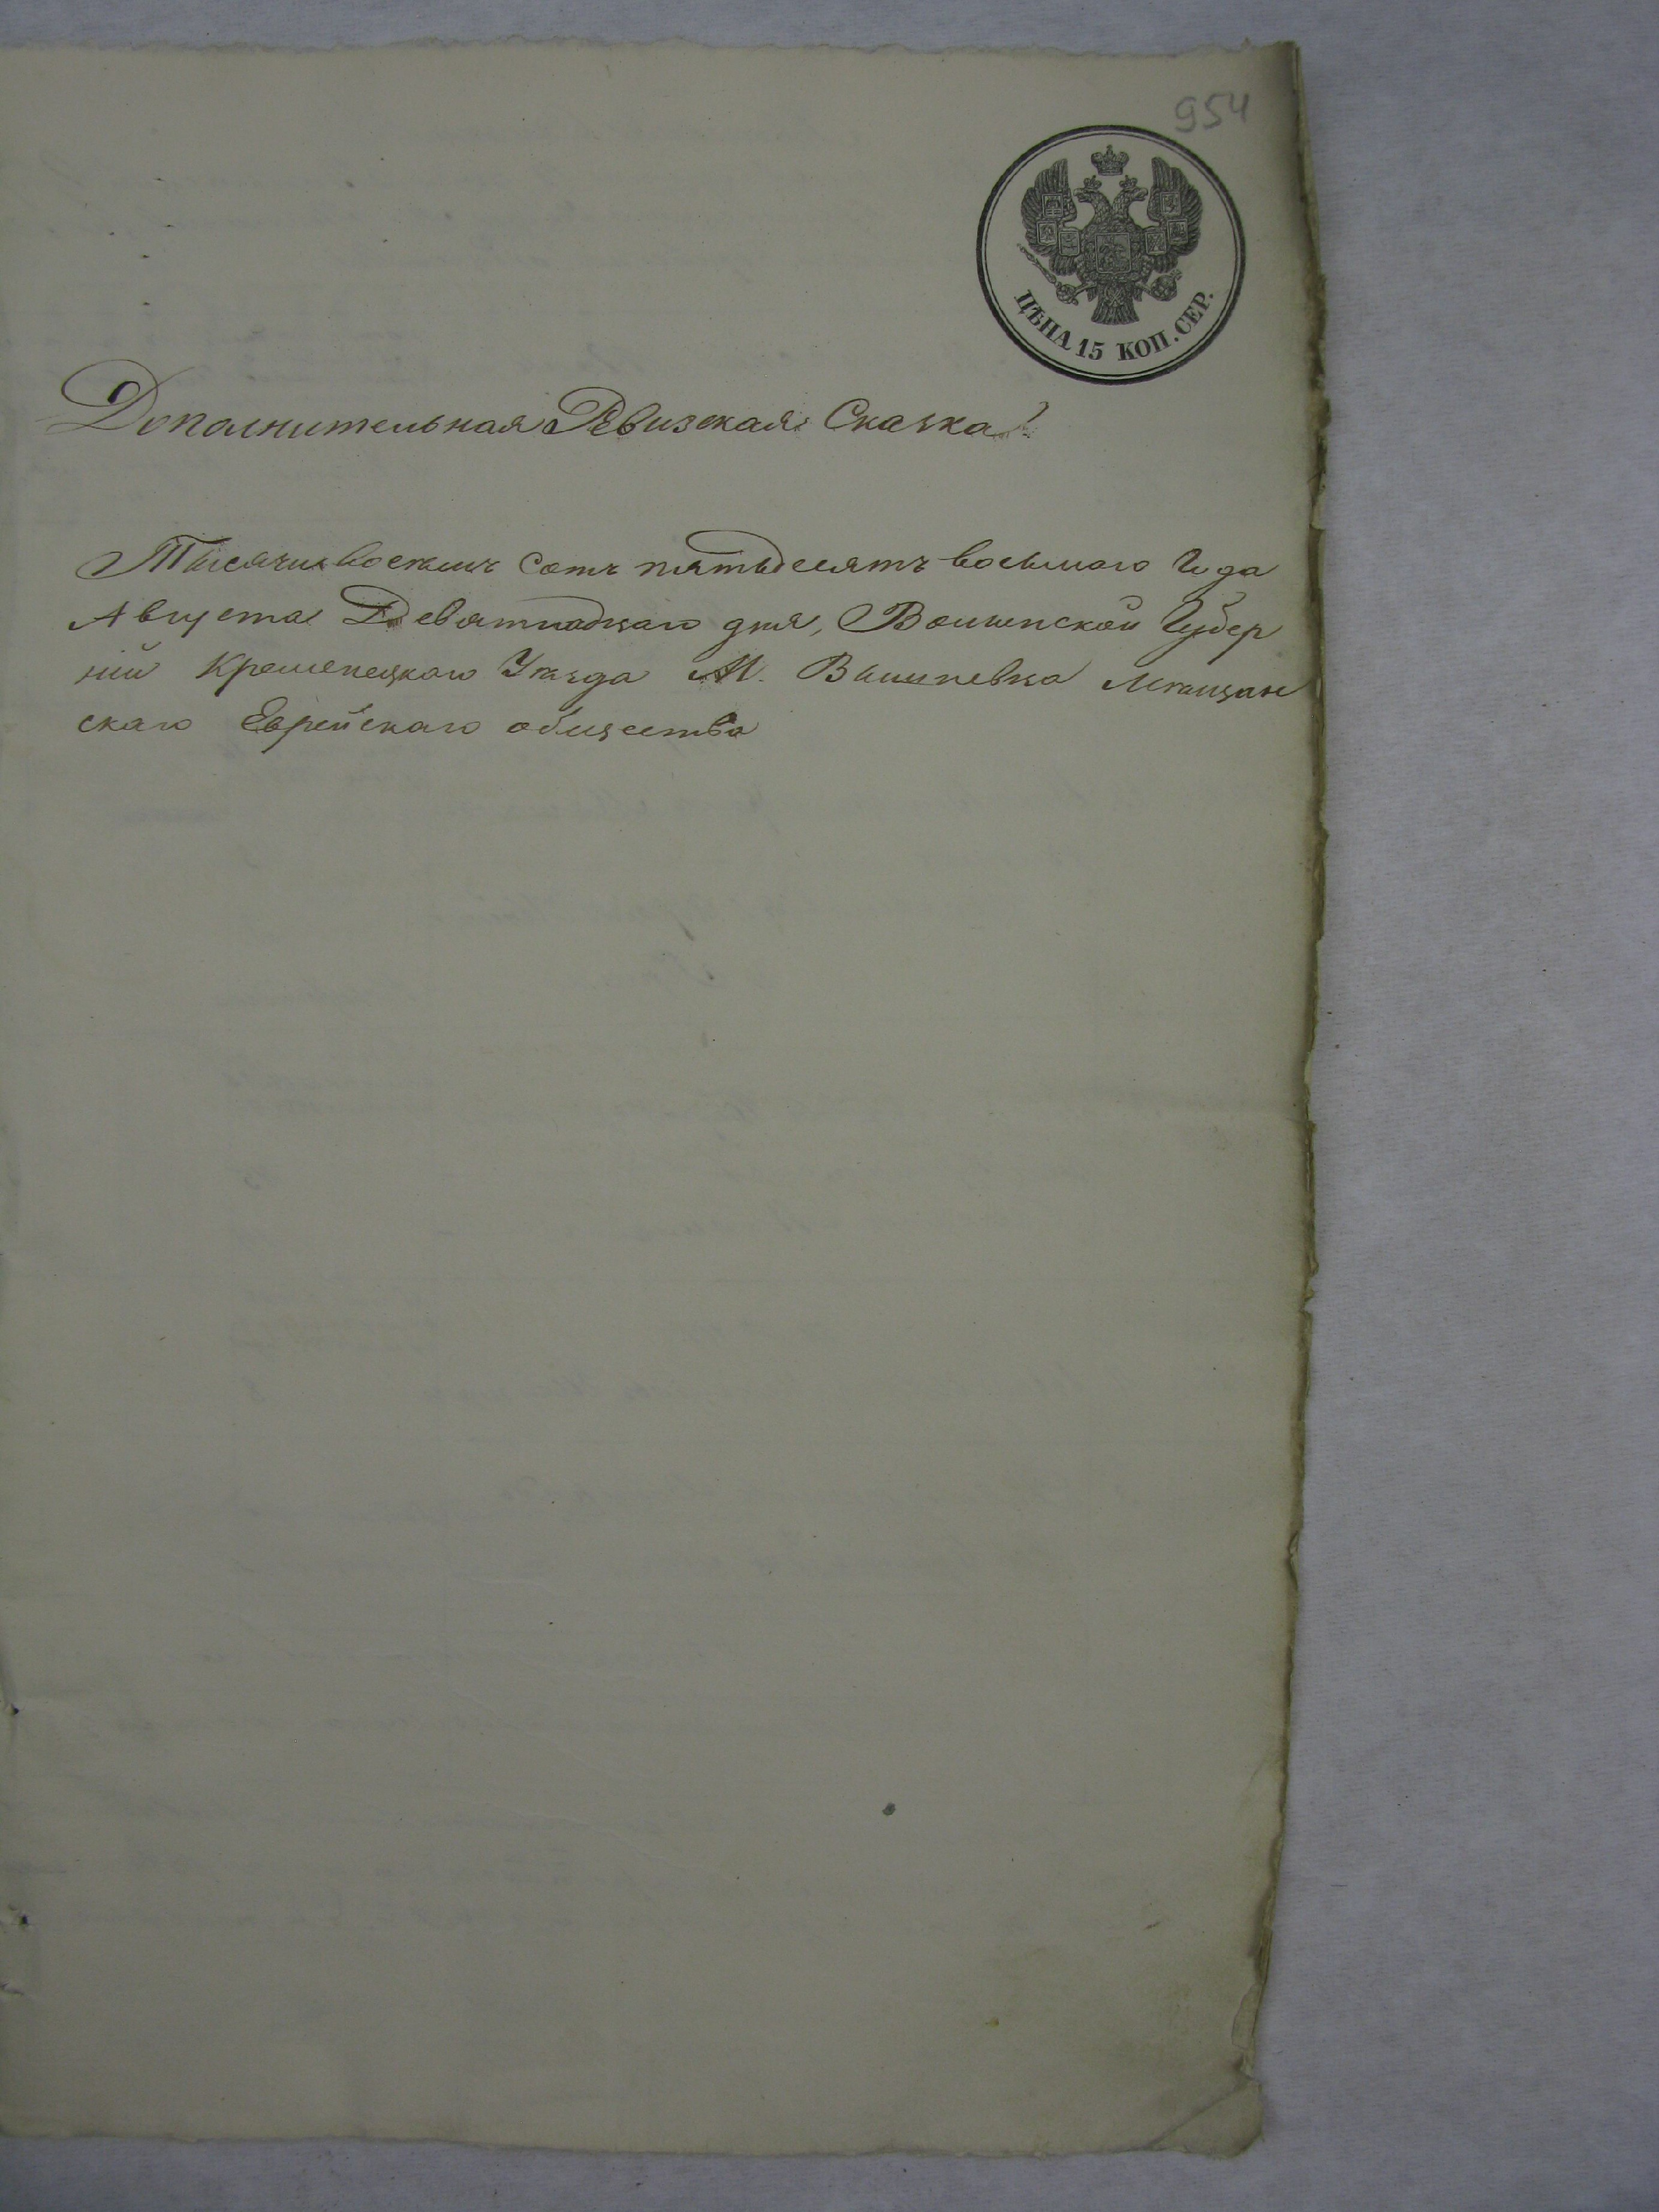 954
ЦѢНА 15 КОП. СЕР.
Дополнительная Ревизская Сказка
Тысяча восемь сотъ пятьдесятъ восьмаго года
Августа Девятнадцаго дня, Волынской Губер
ніи Кременецкаго Уѣзда М. Вишневка Мѣщан
скаго Еврейскаго общества